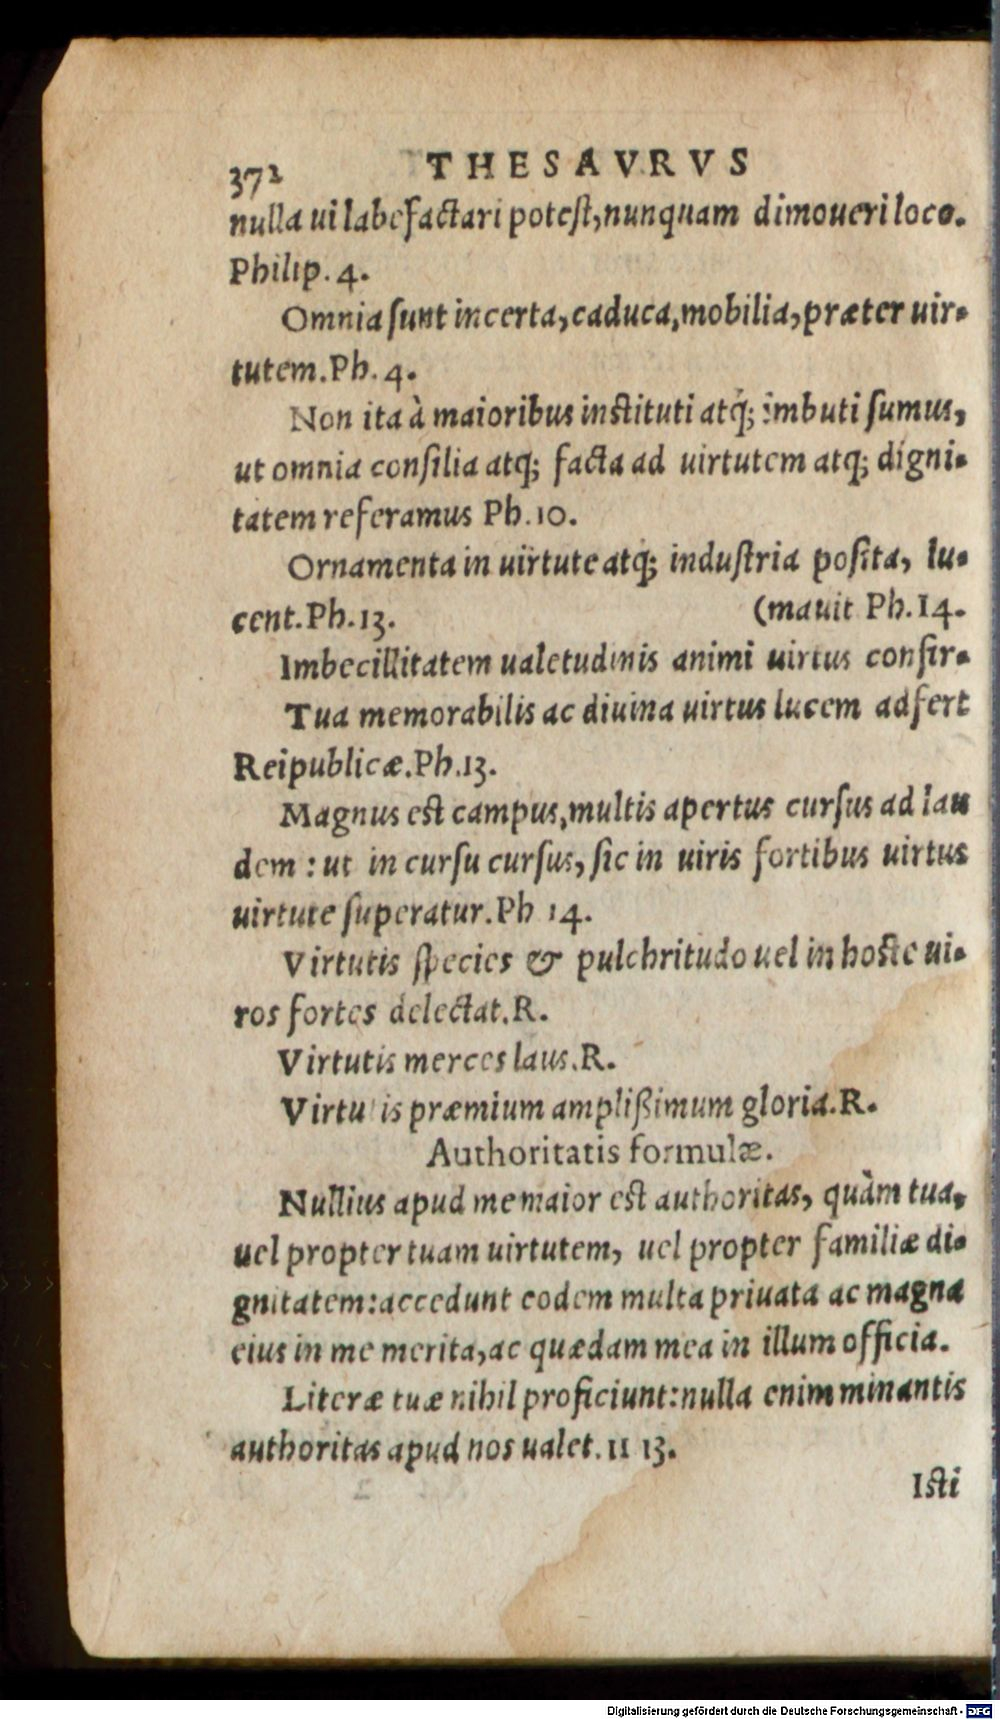 372 THESAVRVS
nulla ui labefactari potest, nunquam dimoueri loco.
Philip. 4.
Omnia sunt incerta, caduca, mobilia, præter uir-
tutem. Ph. 4.
Non ita à maioribus instituti atq; imbuti sumus,
ut omnia consilia atq; facta ad uirtutem atq; digni-
tatem referamus Ph. 10.
Ornamenta in uirtute atq; industria posita, lu-
cent. Ph. 13. (mauit Ph. 14.
Imbecillitatem ualetudinis animi uirtus confir-
Tua memorabilis ac diuina uirtus lucem adfert
Reipublicæ. Ph. 13.
Magnus est campus, multis apertus cursus ad lau
dem : ut in cursu cursus, sic in uiris fortibus uirtus
uirtute superatur. Ph 14.
Virtutis species & pulchritudo uel in hoste ui-
ros fortes delectat. R.
Virtutis merces laus. R.
Virtu is præmium amplißimum gloria. R.
Authoritatis formulæ.
Nullius apud me maior est authoritas, quàm tua,
uel propter tuam uirtutem, uel propter familiæ di-
gnitatem: accedunt eodem multa priuata ac magna
eius in me merita, ac quædam mea in illum officia.
Literæ tuæ nihil proficiunt: nulla enim minantis
authoritas apud nos ualet. 11 13.
Isti
Digitalisierung gefördert durch die Deutsche Forschungsgemeinschaft - DFG